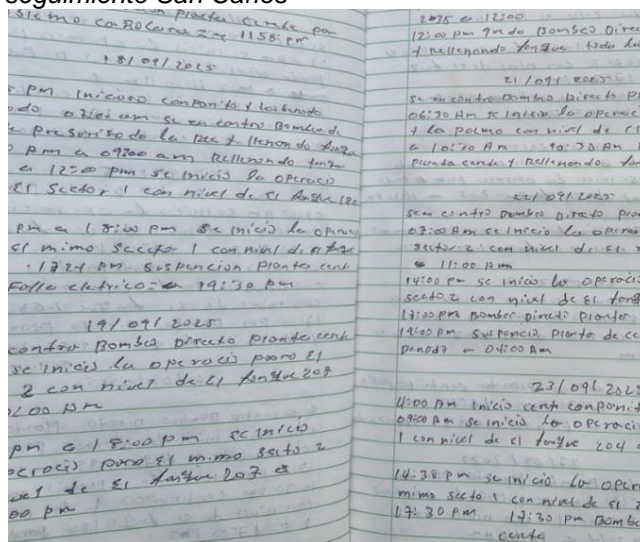 seguimiento San Carlos
planta cente por
1158 pm
18/09/2025
pm inicio con ponito y
se en contro Bombeo
Presurisado la red y llenondo tonque
pm a 09:00 am Rellenondo tonque
a 12:00 pm se inicio la operacio
El Sector 1 con nivel de El tonque 120
pm a 18:00 pm se inicio la operac
El mimo Sector 1 con nivel de El tonque
: 17:24 pm suspencion Planta cent
Falla eletrico a 19:30 pm
19/09/2025
contro Bombeo Directo Planta cent
se inicio la operocio para El
2 con nivel de El tonque 207
:00 pm
pm a 18:00 pm se inicio
operacio para El mimo secto 2
nivel de El tonque 207 a
00 pm
2025 a 12:00
12:00 pm quedo Bombeo Direc
y Rellenando tonque todo la
21/09/2025
se en contro Bombeo Directo Pl
06:30 Am se inicio la operacio
y la palma con nivel de El
a 10:30 Am 10:30 Am
Planta cente y Rellenando ton
22/09/2025
contro Bombeo Directo Plan
07:00 Am se inicio la operac
sector 2 con nivel de El
11:00 Am
14:00 pm se inicio la operacio
secto 2 con nivel de El tonq
17:00 pm Bombeo Directo Planta
19:00 pm Suspencio Planta de ce
a 04:00 Am
23/09/2025
4:00 Am inicio cente con ponit
09:00 Am se inicio la operaci
1 con nivel de El tonque 204
14:30 pm se inicio la opera
mimo secto 1 con nivel de El 2
17:30 pm 17:30 pm Bombe
centa